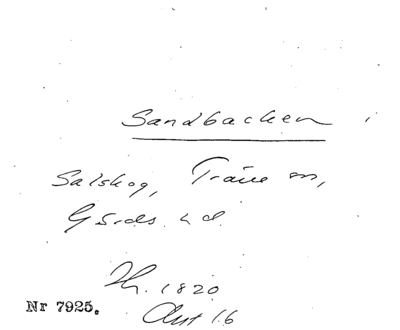 Sandbacken
Salskog, Träne sn,
Gärds hd.
1820
Nr 7925.
Akt 16